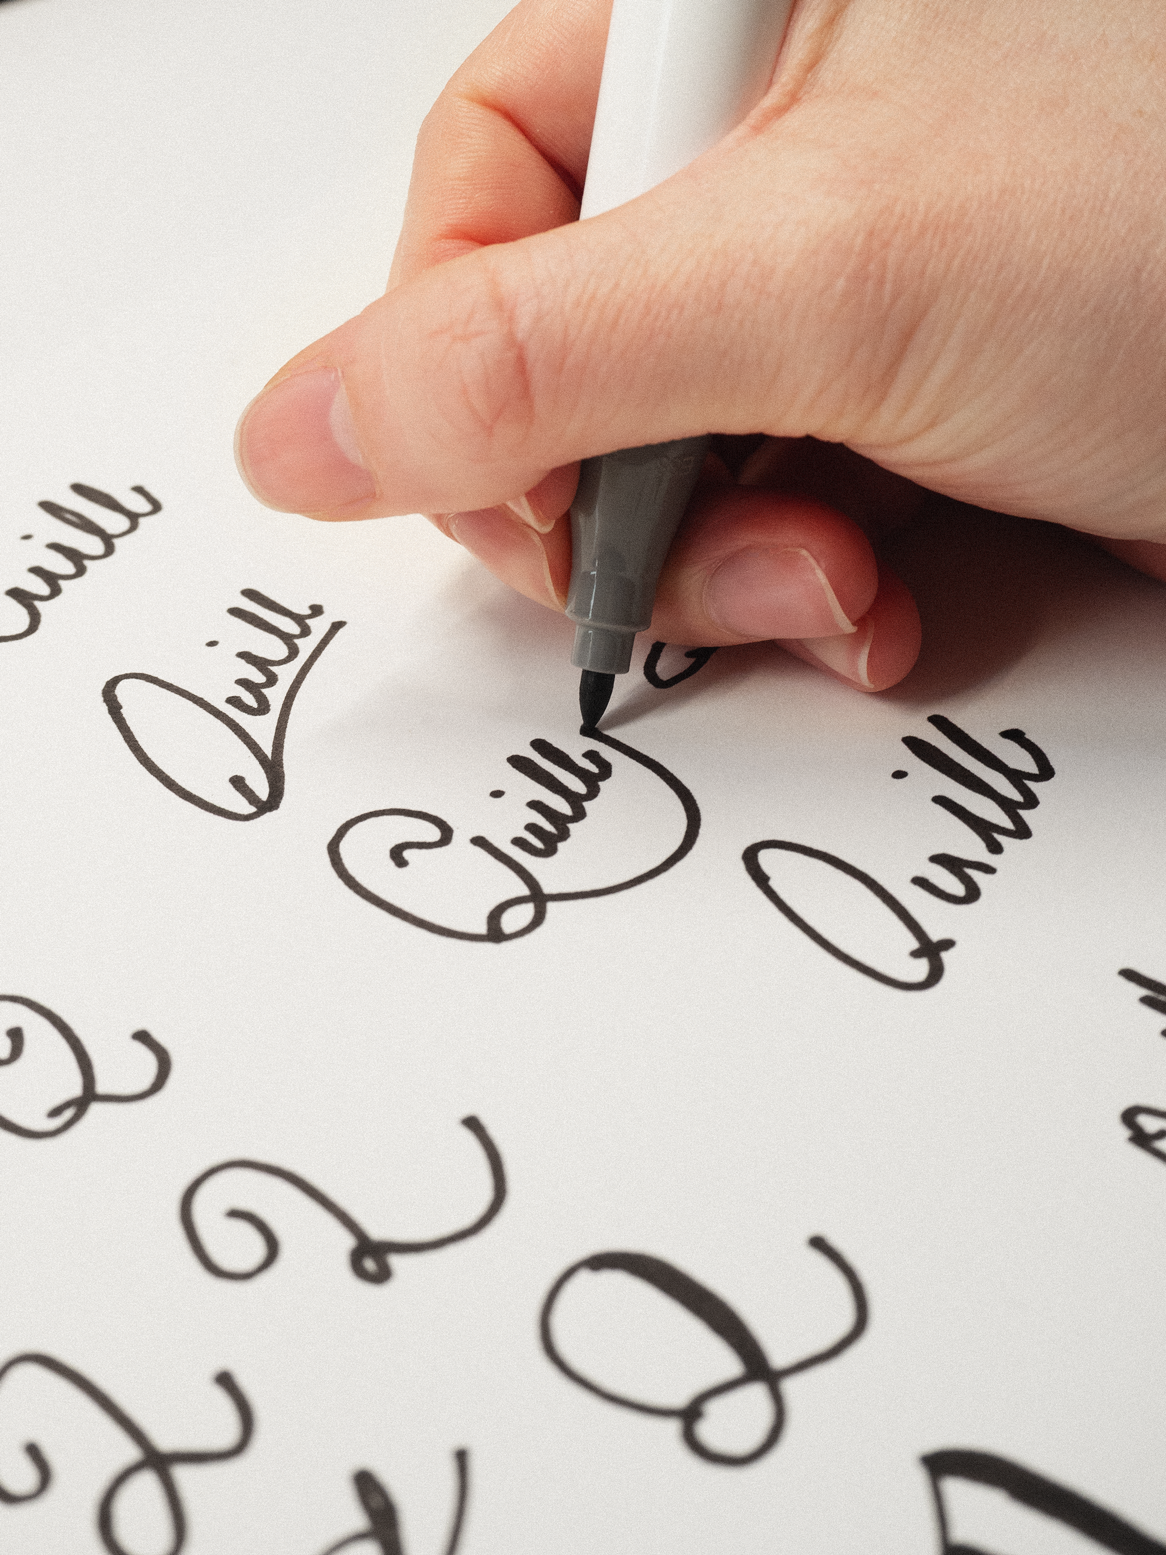 uill
Quill
Quill
Quill
Q
Q
Q
Q